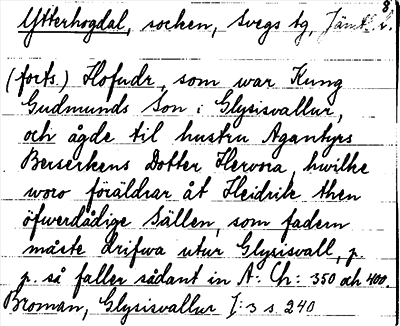 8.
Ytterhogdal, socken, Svegs tg, Jämtl. l.
(forts.) Hofudr, som war Kung
Gudmunds Son i Glysisvallur,
och ägde til hustru Agantyrs
Berserkens Dotter Hervora, hwilke
woro föräldrar åt Heidrik then
öfwerdådige Sällen, som fadern
måste drifwa utur Glysisvall, p.
p. så faller sådant in A: Ch: 350 och 400.
Broman, Glysisvallur I: 3 s. 240